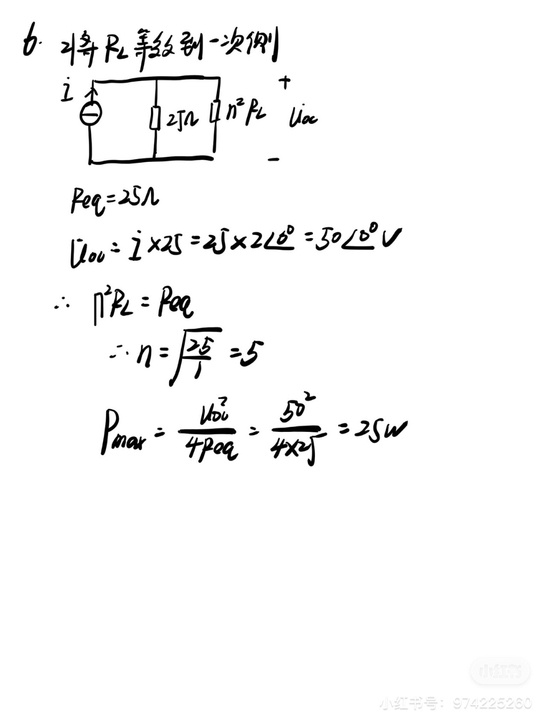 6. 将RL等效到一次侧
i
25Ω
n²RL
+
U̇oc
-
Req=25Ω
U̇oc=İ×25=25×2∠0°=50∠0°V
∴ n²RL=Req
∴n=√(25/1)=5
Pmax=Uoc²/4Req=50²/4×25=25W
小红书
小红书号: 974225260